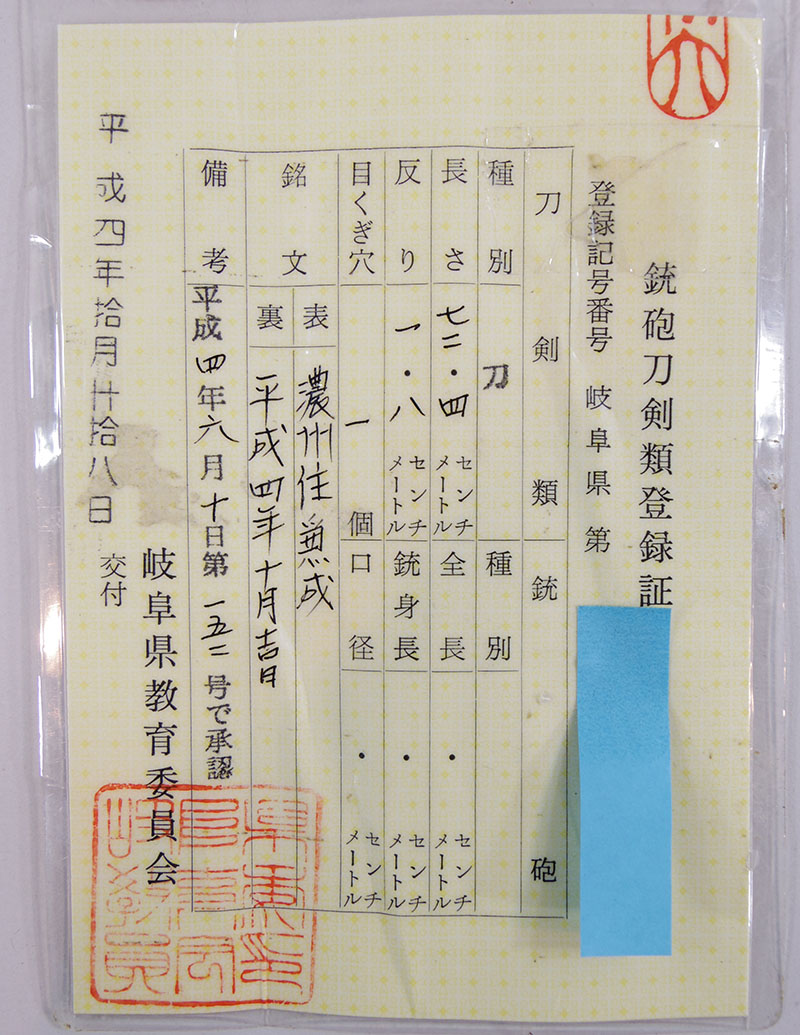 銃砲刀剣類登録証
登録記号番号 岐阜県 第
刀剣類 銃砲
種別 刀 種別
長さ 七二・四 センチメートル 全長 ・ センチメートル
反り 一・八 センチメートル 銃身長 ・ センチメートル
目くぎ穴 一個 口径 ・ センチメートル
銘文 表 濃州住兼成
裏 平成四年十月吉日
備考 平成四年六月十日第一五二号で承認
岐阜県教育委員会
平成四年拾月廿拾八日 交付